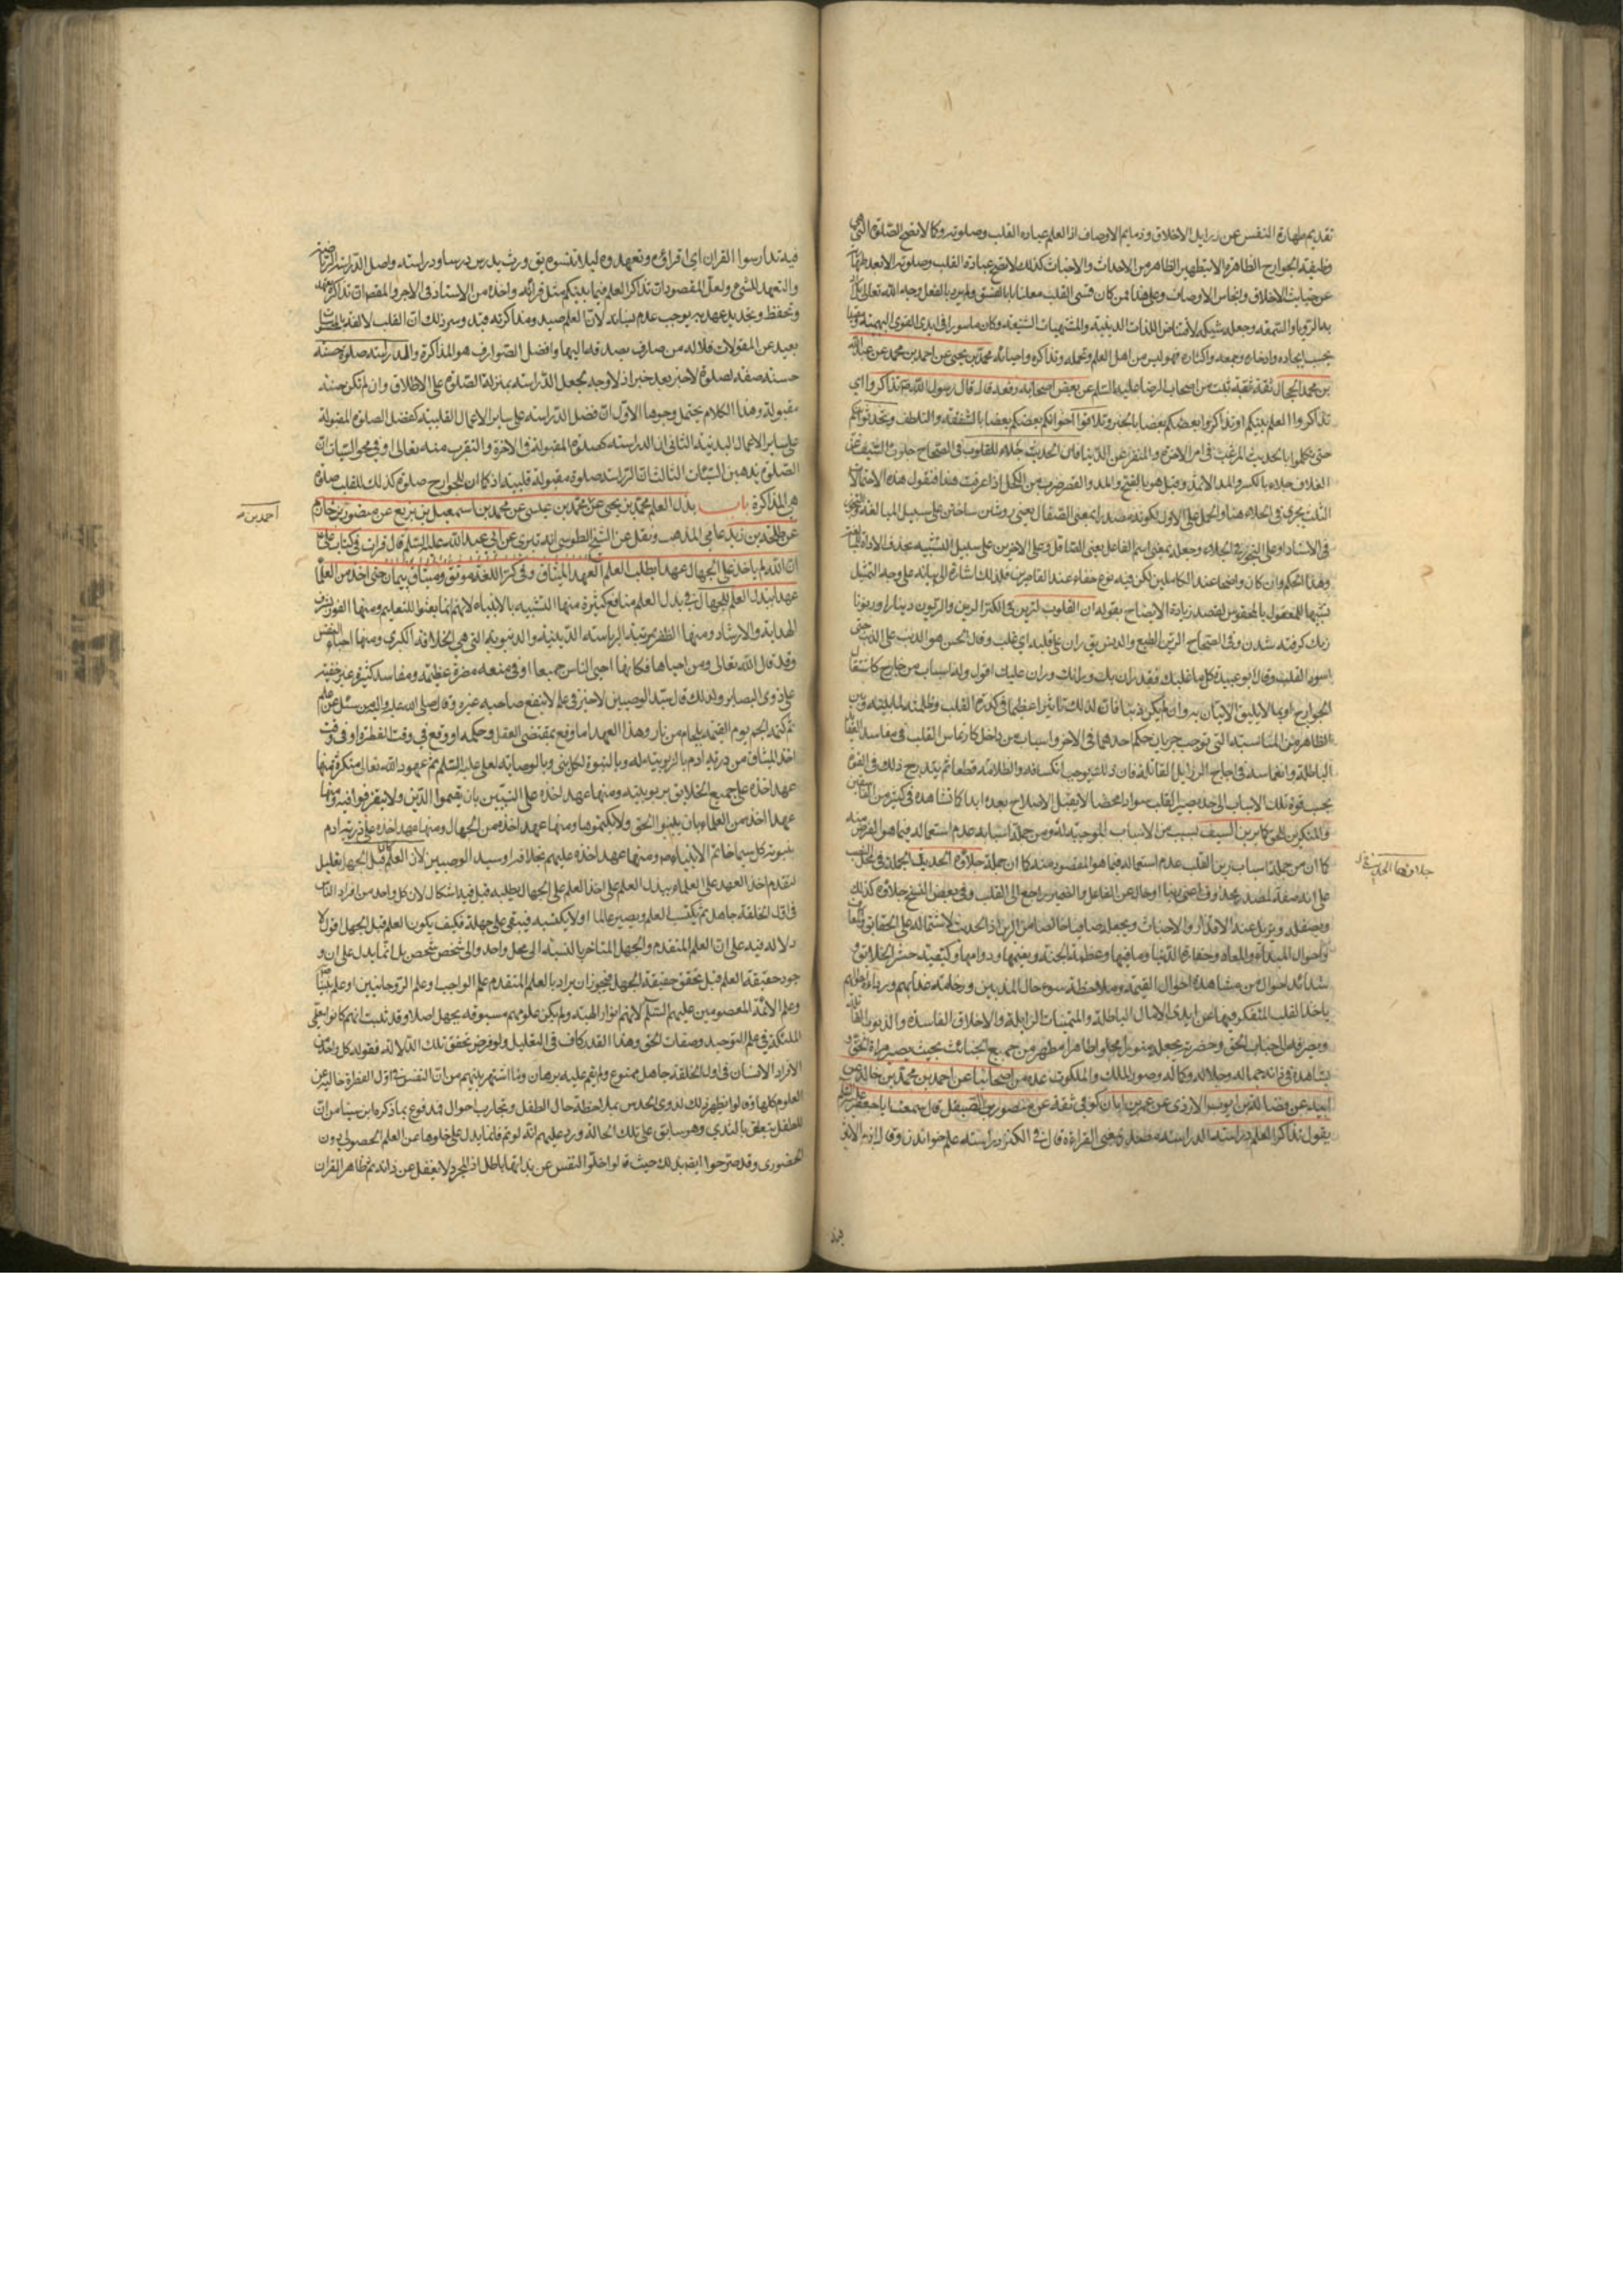 تقديم طهارة النفس عن رذايل الاخلاق وذمايم الاوصاف اذ العلم عبادة القلب وصلوته وكما لا تصح الصلوة التي هي
وظيفة الجوارح الظاهرة الا بتطهير الظاهر من الاحداث والاخباث كذلك لا تصح عبادة القلب وصلوته الا بعد طهارته
عن خبايث الاخلاق وانجاس الاوصاف وعلى هذا فمن كان قسي القلب معلنا بالفسق ولم يرد بالفعل وجه الله تعالى بل اراد
به الريا والسمعة وجعله شبكة لاقتناص اللذات الدنية والمشتهيات الشنيعة وكان ماسورا في ايدي القوى البهيمية
يجب ايجاده وادخاره وجمعه واكثاره فهو ليس من اهل العلم وتحمله وتذاكره واحيائه محمد بن يحيى عن احمد بن محمد عن عبد الله
بن محمد الحجال ثقة ثقة ثبت من اصحاب الرضا عليه السلم عن بعض اصحابه رفعه قال قال رسول الله تذاكروا اي
تذاكروا العلم بينكم او تذاكروا بعضكم بعضا بالخير وتلاقوا اخوانكم بعضكم بعضا بالشفقة والتلطف وتحدثوا
حتى تكلموا بالحديث المرغب في امر الاخرة والمنفر عن الدنيا فان الحديث جلاء للقلوب في الصحاح جلوت السيف
جلاء بالكسر والمد وقيل هو بالفتح والمد والقصر ضرب من الكحل اذا عرفت هذا فنقول هذه الاحتمالات
الثلث يجري في الجلاء هنا والحمل على الاول لكونه مصدرا بمعنى الصقال يعني روشن ساختن على سبيل المبالغة
في الاسناد او على التجوز في الجلاء وجعله بمعنى اسم الفاعل يعني الصاقل وعلى الاخرين على سبيل التشبيه بحذف الاداة
وهذا الحكم وان كان واضحا عند الكاملين لكن فيه نوع خفاء عند القاصرين فلذلك اشار الى بيانه على وجه التمثيل
تشبيها للمعقول بالمحسوس لقصد زيادة الايضاح بقوله ان القلوب لترين في الكنز الرين والريون دينا را وريونا
زنك كرفته شدن وفي الصحاح الرين الطبع والدنس يق ران على قلبه اي غلب وقال الحسن هو الذنب على الذنب حتى
اسود القلب وقال ابو عبيدة كل ما غلبك فقد ران بك ورانك وران عليك اقول وله اسباب من خارج كاشتغال
الجوارح بما لا يليق الاتيان به وان لم يكن ذنبا فان لذلك تاثيرا عظيما في كدرة القلب وظلمته لما بينه وبين
الظاهر من المناسبة التي توجب جريان حكم احدهما في الاخر واسباب من داخل كارتماس القلب في مفاسد العقايد
الباطلة وانغماسه في اجاج الرذايل القاتلة فان ذلك يوجب انكسافه وظلامته قطعا ثم يتدرج ذلك في القوة
بحسب قوة تلك الاسباب الى حد صير القلب سوادا محضا لا يقبل الاصلاح بعده ابدا كما نشاهده في كثير من الفاسقين
والمنكرين للحق كما يرين السيف بسبب من الاسباب الموجبة له ومن جملة اسبابه عدم استعماله فيما هو الغرض منه
كما ان من جملة اسباب رين القلب عدم استعماله فيما هو المقصود منه كما ان جملة جلاؤه الحديث الجملة في محل النصب
على انه صفة لمصدر محذوف اعني رينا او حال عن الفاعل والضمير راجع الى القلب وفي بعض النسخ جلاؤه كذلك
ويصقله ويزيل عنه الاقذار والاخباث ويجعله صافيا خالصا من الرين اذ الحديث لاشتماله على الحقايق
واحوال المبدا والمعاد وحقارة الدنيا وما فيها وعظمة الجنة ونعيمها ودوامها وكيفية حشر الخلايق
شدائد احوال من مشاهدة احوال القيمة وملاحظة سوء حال المذنبين
ياخذ القلب المتفكر فيها عن ايدي الامال الباطلة والمتمنيات الزايلة والاخلاق الفاسدة والذنوب
ويصرفه الى جناب الحق وحضرته ويجعله منورا مجلوا طاهرا مطهرا من جميع الخبائث بحيث يصير مراة الحق
يشاهد فى ذاته جماله وجلاله وكماله وصور الملك والملكوت عدة من اصحابنا عن احمد بن محمد بن خالد عن
ابيه عن فضالة بن ايوب الازدي عن عمر بن ابان كوفي ثقة عن منصور الصيقل قال سمعت ابا جعفر عليه السلم
يقول تذاكر العلم دراسة الدراسة بمعنى القراءة قال في الكنز دراسة علم خواندن وقال ابن الاثير
جلاؤها الحديث خ ل
فيه تدارسوا القران اي اقراؤه وتعهدوه لئلا تنسوه يق درس يدرس درسا ودراسة واصل الدراسة الرياضة
والتعهد للشيء ولعل المقصود ان تذاكر العلم فيما بينكم مثل قرائته واخذه من الاستاد في الاجر والمقصود ان تذاكره
وتحفظه وتجديد عهد به يوجب عدم نسيانه لان العلم صيد ومذاكرته قيد وسر ذلك ان القلب لالفه بالمحسوسات
بعيد عن المعقولات فلا له من صارف يصرفه اليها وافضل الصوارف هو المذاكرة والدراسة صلوة حسنة
حسنة صفة لصلوة لا خبر بعد خبر اذ لا وجه لجعل الدراسة بمنزلة الصلوة على الاطلاق وان لم تكن حسنة
مقبولة وهذا الكلام يحتمل وجوها الاول ان فضل الدراسة على ساير الاعمال القلبية كفضل الصلوة المقبولة
على ساير الاعمال البدنية الثاني ان الدراسة كصلوة المقبولة في الاخرة والتقرب منه تعالى وفي محو السيئات ان
الصلوة يذهبن السيئات الثالث ان الدراسة صلوة مقبولة قلبية اذ كما ان للجوارح صلوة كذلك للقلب صلوة
هي المذاكرة باب بذل العلم محمد بن يحيى عن محمد بن عيسى عن محمد بن اسمعيل بن بزيع عن منصور بن حازم
عن طلحة بن زيد عامي المذهب ونقل عن الشيخ الطوسي انه بتري عن ابي عبد الله عليه السلم قال قرات في كتاب علي
ان الله لم ياخذ على الجهال عهدا بطلب العلم العهد الميثاق وفي كنز اللغة موثق وميثاق پيمان حتى اخذ من العلماء
عهدا ببذل العلم للجهال في بذل العلم منافع كثيرة منها التشبيه بالانبياء لانهم انما بعثوا للتعليم ومنها الفوز
الهداية والارشاد ومنها الظفر بمرتبة الرياسة الدينية والدنيوية التي هي الخلافة الكبرى ومنها احياء النفس
وقد قال الله تعالى ومن احياها فكانما احيى الناس جميعا وفي منعه مضرة عظيمة ومفاسد كثيرة غير خفية
على ذوي البصاير ولذلك قال سيد الوصيين لا خير في علم لا ينفع صاحبه غيره وقال صلى الله عليه واله من سئل عن علم
ثم كتمه الجم يوم القيمة بلجام من نار وهذا العهد اما وقع بمقتضى العقل وحكمه او وقع في وقت الفطرة او في وقت
اخذ الميثاق من ذرية ادم بالربوبية له وبالنبوة لكل نبي وبالوصاية لعلي عليه السلم ثم عهود الله تعالى متكثرة منها
عهد اخذه على جميع الخلايق بربوبيته ومنها عهد اخذه على النبيين بان يقيموا الدين ولا يتفرقوا فيه ومنها
عهدا اخذه من العلماء بان يبينوا الحق ولا يكتموها ومنها عهد اخذه من الجهال ومنها عهد اخذه على ذرية ادم
بنبوة كل سيما خاتم الانبياء ومنها عهد اخذه عليهم بخلافة سيد الوصيين لان العلم كان قبل الجهل تعليل
لتقدم اخذ العهد على العلماء ببذل العلم على اخذ العلم على الجهال بطلبه قيل فيه اشكال لان كل واحد من افراد الناس
في اول الخلقة جاهل ثم يكتسب العلم ويصير عالما او لا يكتسبه فيبقى على جهله فكيف يكون العلم قبل الجهل اقول لا
دلالة فيه على ان العلم المتقدم والجهل المتاخر بالنسبة الى محل واحد والى شخص شخص بل انما يدل على ان و
جود حقيقة العلم قبل تحقق حقيقة الجهل فيجوز ان يراد بالعلم المتقدم علم الواجب وعلم الروحانيين وعلم نبينا
وعلم الائمة المعصومين عليهم السلم لانهم انوار الهية ولم يكن علومهم مسبوقة بجهل اصلا وقد ثبت انهم كانوا معلمي
الملئكة في علم التوحيد وصفات الحق وهذا القدر كاف في التعليل ولو فرض تحقق تلك الدلالة فقوله كل واحد من
الافراد الانسان في اول الخلقة جاهل ممنوع ولم يقم عليه برهان وما اشتهر بينهم من ان النفس في اول الفطرة خالية عن
العلوم كلها وقالوا يظهر ذلك لذوي الحدس بملاحظة حال الطفل وتجارب احوال فمدفوع بما ذكره ابن سينا من ان
الطفل يتعلق بالثدي وهو سابق على تلك الحالة ويرد عليهم انه لو تم فانما يدل على خلوها عن العلم الحصولي دون
الحضوري وقد صرحوا ايضا بذلك حيث قالوا خلو النفس عن ذاتها باطل اذ المجرد لا يغفل عن ذاته ثم ظاهر القران
احمد بن